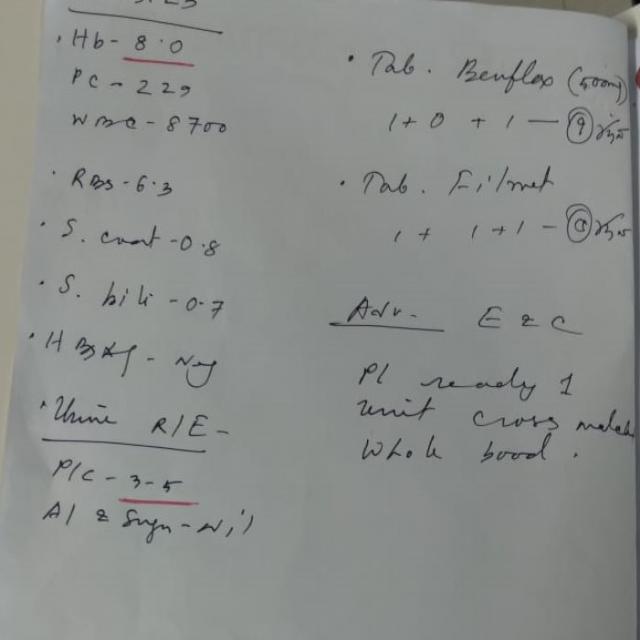 . Hb - 8.0
PC - 229
WBC - 8700
. RBS - 6.3
. S. creat - 0.8
. S. bili - 0.7
. HBsAg - Neg
. Urine R/E -
P/C - 3-5
Al & Sugar - Nil
. Tab. Benflox (500mg)
1 + 0 + 1 —
. Tab. Filmet
1 + 1 + 1 —
Adv. E & C
Pl ready 1
unit cross match
Whole bood.